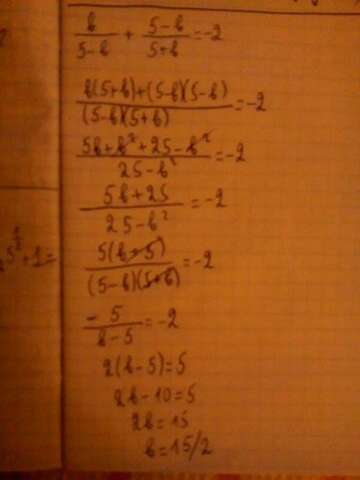 b/(5-b) + (5-b)/(5+b) = -2
(b(5+b)+(5-b)(5-b))/((5-b)(5+b)) = -2
(5b+b²+25-b²)/(25-b²) = -2
(5b+25)/(25-b²) = -2
5(b+5)/((5-b)(5+b)) = -2
-5/(b-5) = -2
2(b-5)=5
2b-10=5
2b=15
b=15/2